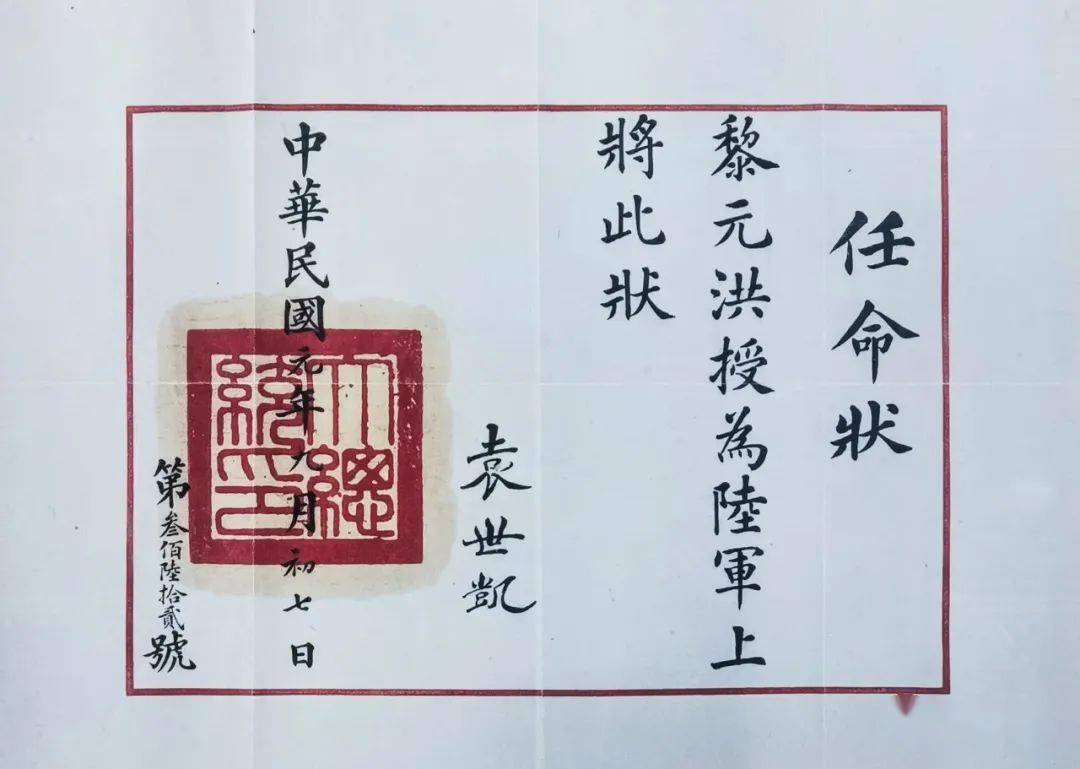 任命狀
黎元洪授為陸軍上
將此狀
袁世凱
中華民國元年九月初七日
大總統印
第叁佰陸拾貳號